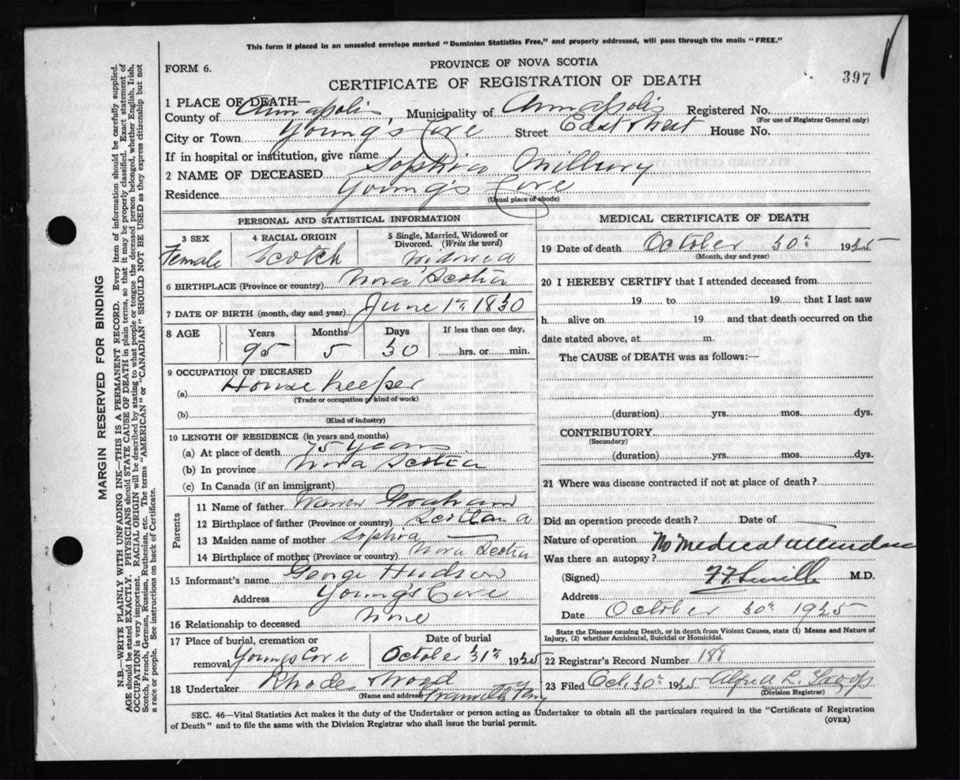 This form if placed in an unsealed envelope marked "Dominion Statistics Free," and properly addressed, will pass through the mails "FREE."
FORM 6.
PROVINCE OF NOVA SCOTIA
CERTIFICATE OF REGISTRATION OF DEATH
397
1 PLACE OF DEATH—
County of Annapolis, Municipality of Annapolis Registered No.
(For use of Registrar General only)
City or Town Young's Cove Street House No.
If in hospital or institution, give name
2 NAME OF DECEASED Sophia Milbury
Residence Young's Cove
(Usual place of abode)
PERSONAL AND STATISTICAL INFORMATION
3 SEX 4 RACIAL ORIGIN 5 Single, Married, Widowed or Divorced. (Write the word)
Female Scotch Widowed
6 BIRTHPLACE (Province or country) Nova Scotia
7 DATE OF BIRTH (month, day and year) June 1st 1830
8 AGE Years Months Days If less than one day,
95 5 30 hrs. or min.
9 OCCUPATION OF DECEASED
(a) House Keeper
(Trade or occupation or kind of work)
(b)
(Kind of industry)
10 LENGTH OF RESIDENCE (in years and months)
(a) At place of death 75 years
(b) In province Nova Scotia
(c) In Canada (if an immigrant)
Parents
11 Name of father Warren
12 Birthplace of father (Province or country)
13 Maiden name of mother Sophia
14 Birthplace of mother (Province or country) Nova Scotia
15 Informant's name George Hudson
Address Young's Cove
16 Relationship to deceased None
17 Place of burial, cremation or removal Youngs Cove
Date of burial October 31st 1925
18 Undertaker Rhode Wood
(Name and address) Granville Ferry
MEDICAL CERTIFICATE OF DEATH
19 Date of death October 30th 1925
(Month, day and year)
20 I HEREBY CERTIFY that I attended deceased from
19 to 19 , that I last saw
h alive on 19 and that death occurred on the
date stated above, at m.
The CAUSE of DEATH was as follows:—
(duration) yrs. mos. dys.
CONTRIBUTORY
(Secondary)
(duration) yrs. mos. dys.
21 Where was disease contracted if not at place of death?
Did an operation precede death? Date of
Nature of operation No Medical attendance
Was there an autopsy?
(Signed) M.D.
Address
Date October 30th 1925
State the Disease causing Death, or in death from Violent Causes, state (1) Means and Nature of Injury, (2) whether Accidental, Suicidal or Homicidal.
22 Registrar's Record Number
23 Filed Oct 30th 1925 Alfred L.
(Division Registrar)
SEC. 46—Vital Statistics Act makes it the duty of the Undertaker or person acting as Undertaker to obtain all the particulars required in the "Certificate of Registration
of Death" and to file the same with the Division Registrar who shall issue the burial permit.
(OVER)
MARGIN RESERVED FOR BINDING
N.B.—WRITE PLAINLY WITH UNFADING INK—THIS IS A PERMANENT RECORD. Every item of information should be carefully supplied.
AGE should be stated EXACTLY. PHYSICIANS should STATE CAUSE OF DEATH in plain terms, so that it may be properly classified. Exact statement of
OCCUPATION is very important. RACIAL ORIGIN will be described by stating to what people or tongue the deceased person belonged, whether English, Irish,
Scotch, French, German, Russian, Ruthenian, etc. The terms "AMERICAN" or "CANADIAN" SHOULD NOT BE USED as they express citizenship but not
a race or people. See instructions on back of Certificate.